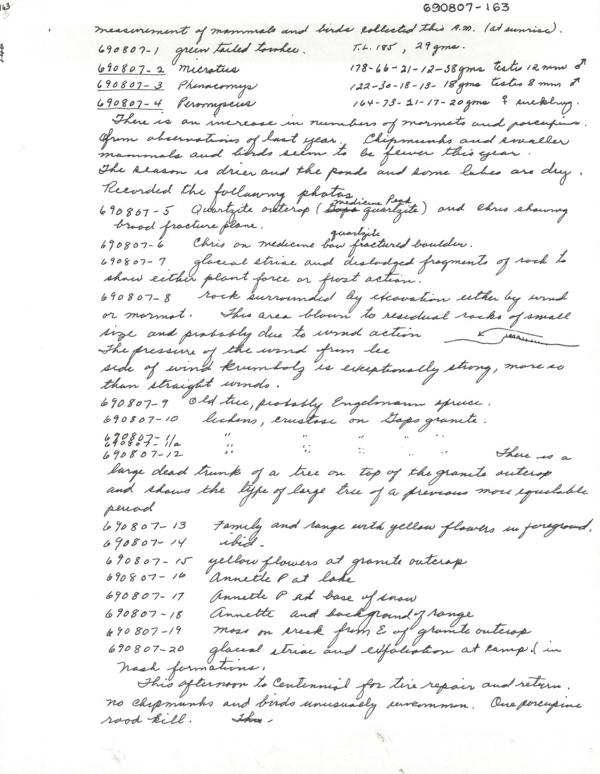 690807-163
measurement of mammals and birds collected this A.M. (at sunrise).
690807-1 green tailed towhee. T.L. 185, 29 gms.
690807-2 Microtus 178-66-21-12-38gms testis 12 mm ♂
690807-3 Phenacomys 122-30-18-13-18gms testis 8 mm ♂
690807-4 Peromyscus 164-73-21-17-20gms ♀
There is an increase in numbers of mormots and porcupine.
from observations of last year. Chipmunks and smaller
mammals and birds seem to be fewer this year.
The season is drier and the ponds and some lakes are dry.
Recorded the following photos.
medicine Peak
690807-5 Quartzite outcrop (Gaps quartzite) and Chris showing
broad fracture plane.
quartzite
690807-6 Chris on medicine bow fractured boulder.
690807-7 glacial striae and dislodged fragments of rock to
show either plant force or frost action.
690807-8 rock surrounded by excavation either by wind
or mormot. This area blown to residual rocks of small
size and probably due to wind action
The pressure of the wind from lee
side of wind Krumholz is exceptionally strong, more so
than straight winds.
690807-9 Old tree, probably Engelmann spruce.
690807-10 lichens, crustose on Gaps granite.
690807-11a " " " "
690807-12 " " " " There is a
large dead trunk of a tree on top of the granite outcrop
and shows the type of large tree of a previous more equitable
period
690807-13 Family and range with yellow flowers in foreground.
690807-14 ibid.
690807-15 yellow flowers at granite outcrop
690807-16 Annette P at lake
690807-17 Annette P at base of snow
690807-18 Annette and background of range
690807-19 moss on creek from E of granite outcrop
690807-20 glacial striae and exfoliation at camp & in
Nash formations.
This afternoon to Centennial for tire repair and return.
no chipmunks and birds unusually uncommon. One porcupine
road kill.